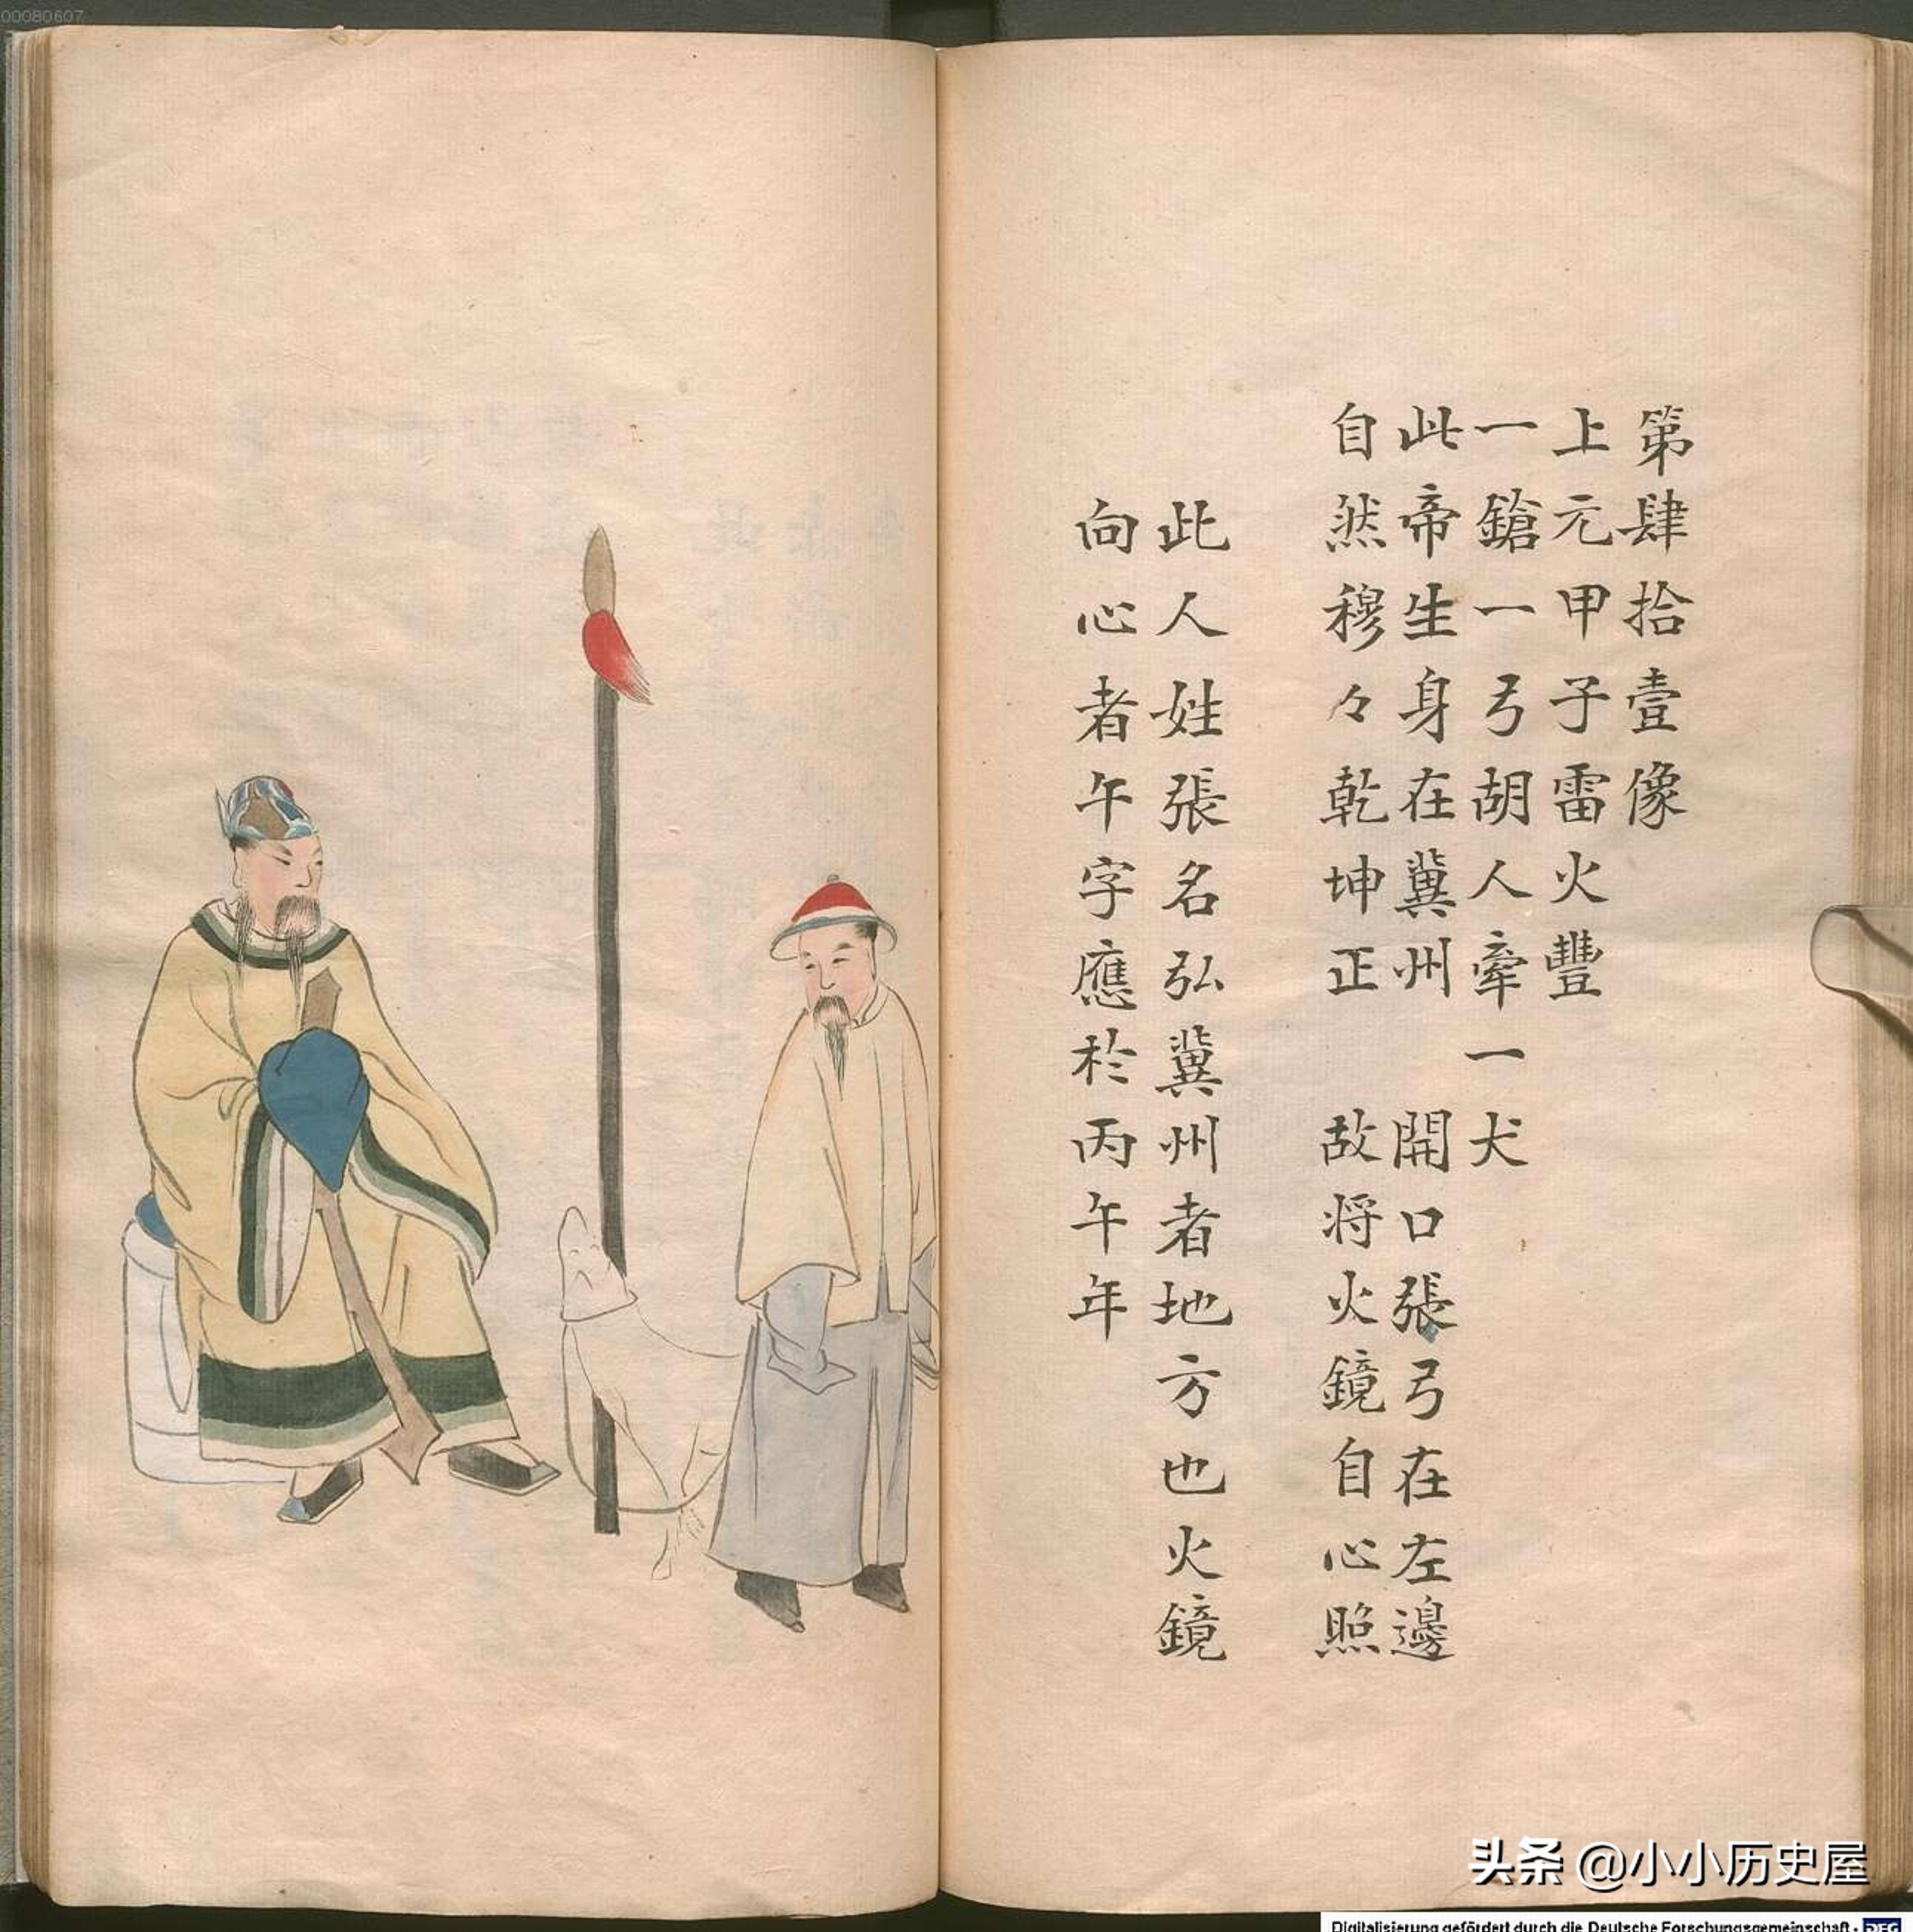 00080607
第肆拾壹像
上元甲子雷火豐
一鎗一弓胡人牽一犬
此帝生身在冀州 開口張弓在左邊
自然穆々乾坤正 故将火鏡自心照
此人姓張名弘冀州者地方也火鏡
向心者午字應於丙午年
头条 @小小历史屋
Digitalisierung gefördert durch die Deutsche Forschungsgemeinschaft - DFG